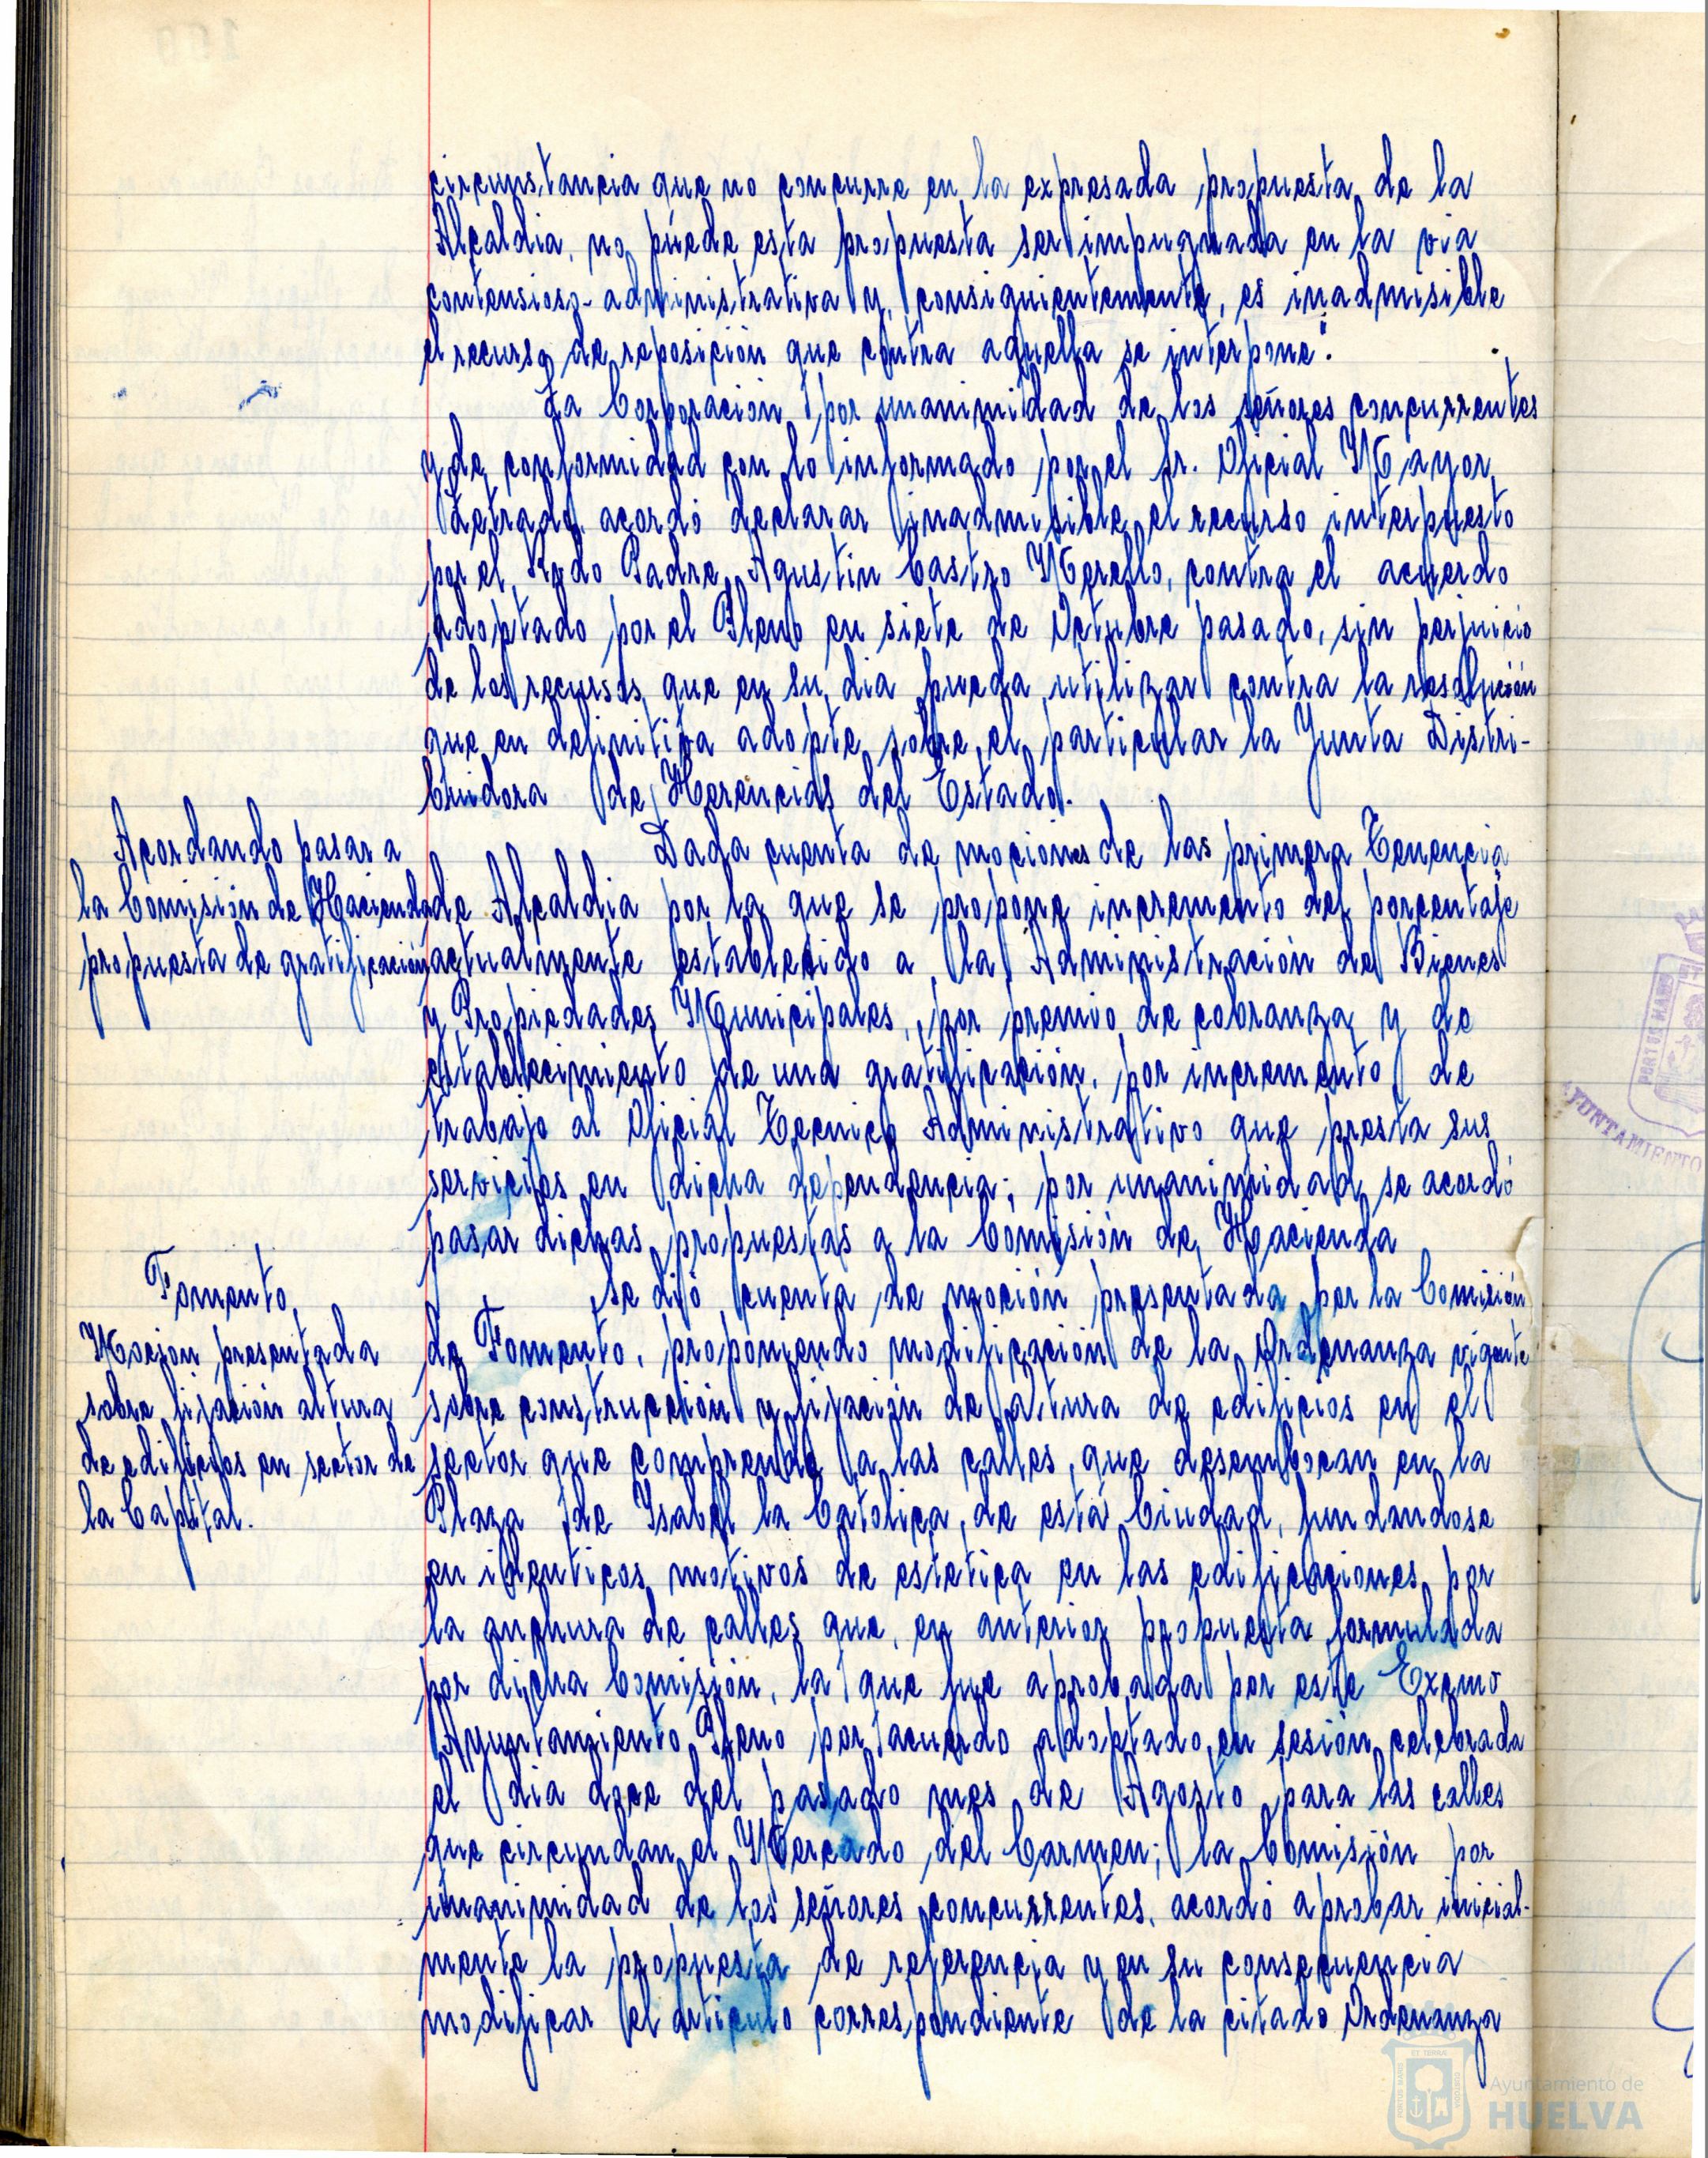 circunstancia que no concurre en la expresada propuesta de la
Alcaldia, no puede esta propuesta ser impugnada en la via
contencioso-administrativa y, consiguientemente, es inadmisible
el recurso de reposición que contra aquella se interpone".
La Corporación, por unanimidad de los señores concurrentes
y de conformidad con lo informado por el Sr. Oficial Mayor
Letrado, acordó declarar inadmisible el recurso interpuesto
por el Rvdo Padre Agustin Castro Merello, contra el acuerdo
adoptado por el Pleno en siete de Octubre pasado, sin perjuicio
de los recursos que en su dia pueda utilizar contra la resolución
que en definitiva adopte sobre el particular la Junta Distri-
buidora de Herencias del Estado.
Acordando pasar a
la Comisión de Hacienda
propuesta de gratificación
Dada cuenta de mociones de las primera Tenencia
de Alcaldia por la que se propone incremento del porcentaje
actualmente establecido a la Administración de Bienes
y Propiedades Municipales, por premio de cobranza y de
establecimiento de una gratificación, por incremento de
trabajo al Oficial Tecnico Administrativo que presta sus
servicios en dicha dependencia; por unanimidad se acordó
pasar dichas propuestas a la Comisión de Hacienda
Fomento,
Moción presentada
sobre fijación altura
de edificios en sector de
la Capital.
Se dió cuenta de moción presentada por la Comisión
de Fomento, proponiendo modificación de la Ordenanza vigente
sobre construcción y fijación de altura de edificios en el
sector que comprende a las calles, que desembocan en la
Plaza de Isabel la Catolica, de esta Ciudad, fundandose
en identicos motivos de estetica en las edificaciones por
la anchura de calles que, en anterior propuesta formulada
por dicha Comisión, la que fue aprobada por este Excmo
Ayuntamiento Pleno por acuerdo adoptado en sesión celebrada
el dia doce del pasado mes de Agosto para las calles
que circundan el Mercado del Carmen; la Comisión por
unanimidad de los señores concurrentes, acordó aprobar inicial-
mente la propuesta de referencia y en su consecuencia
modificar el articulo correspondiente de la citado Ordenanza
PORTUS MARIS
AYUNTAMIENTO
Ayuntamiento de
HUELVA